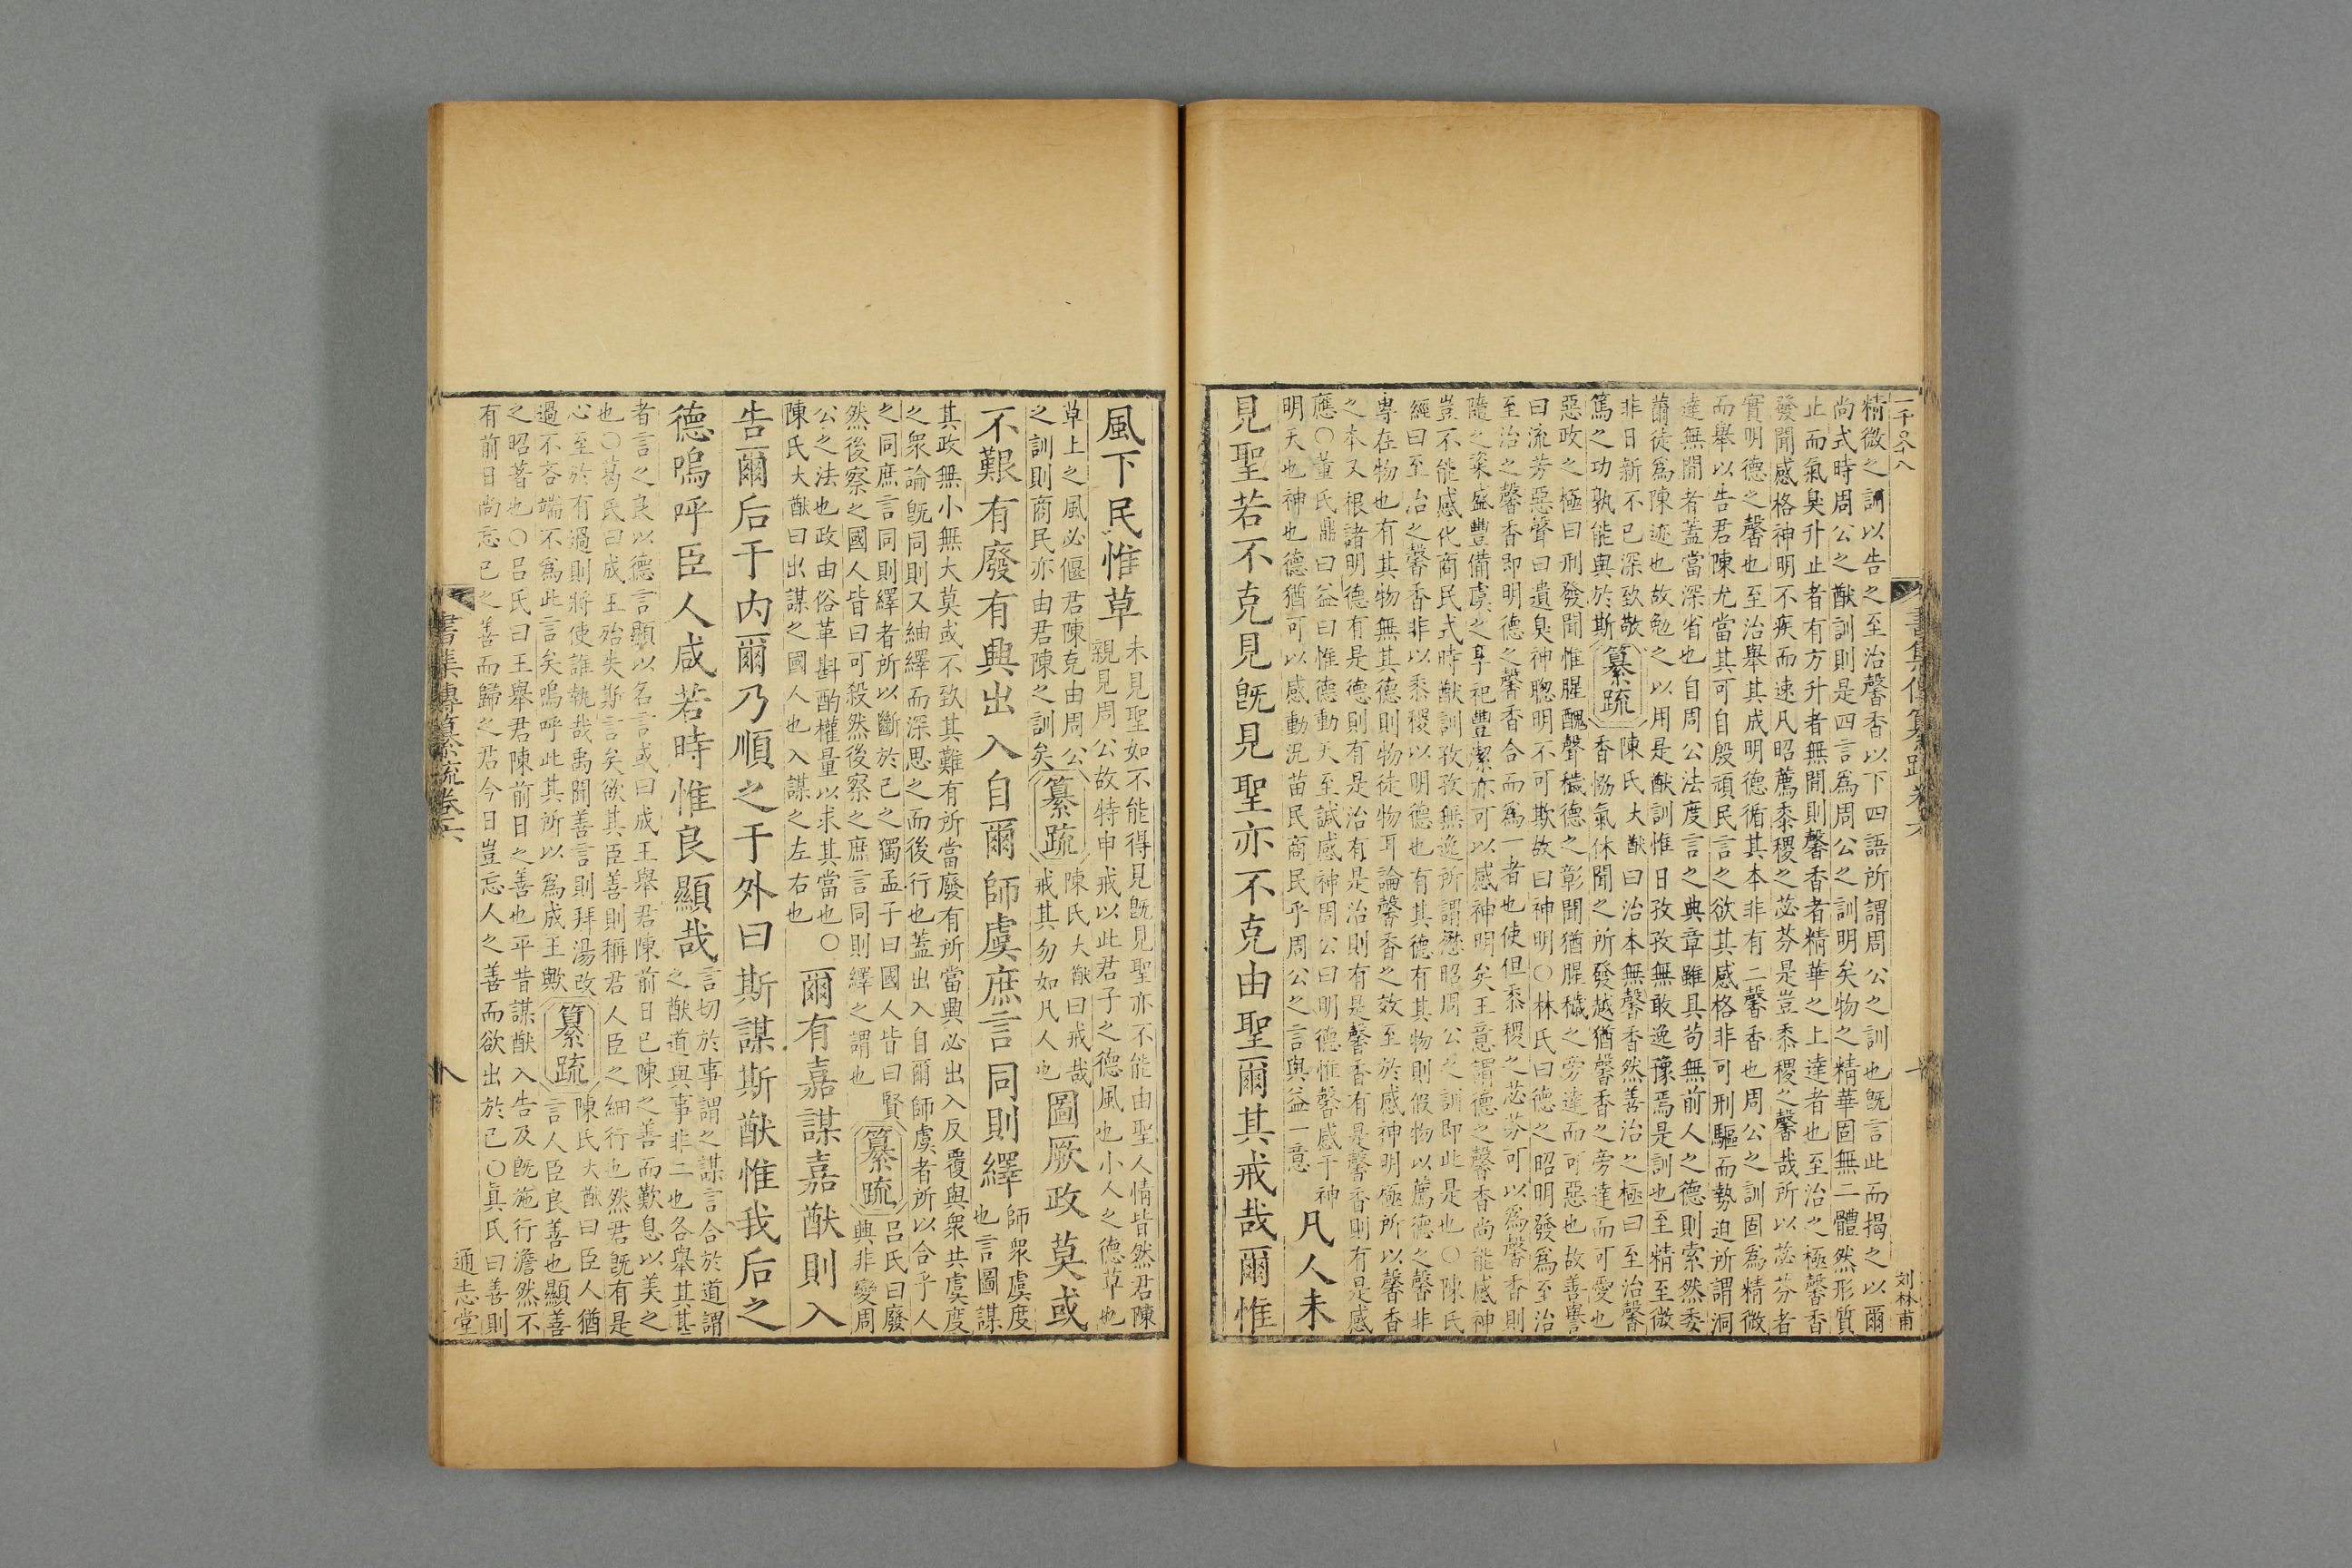 精微之訓以告之至治馨香以下四語所謂周公之訓也旣言此而揭之以爾
尚式時周公之猷訓則是四言爲周公之訓明矣物之精華固無二體然形質
止而氣臭升止者有方升者無間則馨香者精華之上達者也至治之極馨香
發聞感格神明不疾而速凡昭薦黍稷之苾芬是豈黍稷之馨哉所以苾芬者
實明德之馨也至治舉其成明德循其本非有二馨香也周公之訓固爲精微
而舉以告君陳尤當其可自殷頑民言之欲其感格非可刑驅而勢迫所謂洞
達無間者蓋當深省也自周公法度言之典章雖具苟無前人之德則索然委
薾徒爲陳迹也故勉之以用是猷訓惟日孜孜無敢逸豫焉是訓也至精至微
非日新不已深致敬
篤之功孰能與於斯
纂疏
陳氏大猷曰治本無馨香然善治之極曰至治馨
香惱氣休聞之所發越猶馨香之旁達而可愛也
惡政之極曰刑發聞惟腥醜聲穢德之彰聞猶腥穢之旁達而可惡也故善譽
曰流芳惡聲曰遺臭神聰明不可欺故曰神明○林氏曰德之昭明發爲至治
至治之馨香即明德之馨香合而爲一者也使但黍稷之苾芬可以爲馨香則
隨之粢盛豐備虞之享祀豐潔亦可以感神明矣王意謂德之馨香尚能感神
豈不能感化商民式時猷訓孜孜無逸所謂懋昭周公之訓即此是也○陳氏
經曰至治之馨香非以黍稷以明德也有其德有其物則假物以薦德之馨非
專在物也有其物無其德則物徒物耳論馨香之效至於感神明極所以馨香
之本又根諸明德有是德則有是治有是治則有是馨香有是馨香則有是感
應○董氏鼎曰益曰惟德動天至諴感神周公曰明德惟馨感于神
明天也神也德猶可以感動況苗民商民乎周公之言與益一意
凡人未
見聖若不克見旣見聖亦不克由聖爾其戒哉爾惟
風下民惟草
未見聖如不能得見旣見聖亦不能由聖人情皆然君陳
親見周公故特申戒以此君子之德風也小人之德草也
草上之風必偃君陳克由周公
之訓則商民亦由君陳之訓矣
纂疏
陳氏大猷曰戒哉
戒其勿如凡人也
圖厥政莫或
不艱有廢有興出入自爾師虞庶言同則繹
師衆虞度
也言圖謀
其政無小無大莫或不致其難有所當廢有所當興必出入反覆與衆共虞度
之衆論旣同則又紬繹而深思之而後行也蓋出入自爾師虞者所以合乎人
之同庶言同則繹者所以斷於已之獨孟子曰國人皆曰賢
然後察之國人皆曰可殺然後察之庶言同則繹之謂也
纂疏
呂氏曰廢
典非變周
公之法也政由俗革斟酌權量以求其當也○
陳氏大猷曰出謀之國人也入謀之左右也
爾有嘉謀嘉猷則入
告爾后于内爾乃順之于外曰斯謀斯猷惟我后之
德嗚呼臣人咸若時惟良顯哉
言切於事謂之謀言合於道謂
之猷道與事非二也各舉其甚
者言之良以德言顯以名言或曰成王舉君陳前日已陳之善而歎息以美之
也○葛氏曰成王殆失斯言矣欲其臣善則稱君人臣之細行也然君旣有是
心至於有過則將使誰執哉禹聞善言則拜湯改
過不吝端不爲此言矣嗚呼此其所以爲成王歟
纂疏
陳氏大猷曰臣人猶
言人臣良善也顯善
之昭著也○呂氏曰王舉君陳前日之善也平昔謀猷入告及旣施行澹然不
有前日尚忘已之善而歸之君今日豈忘人之善而欲出於已○眞氏曰善則
刘林甫
書集傳纂疏卷六
八
通志堂